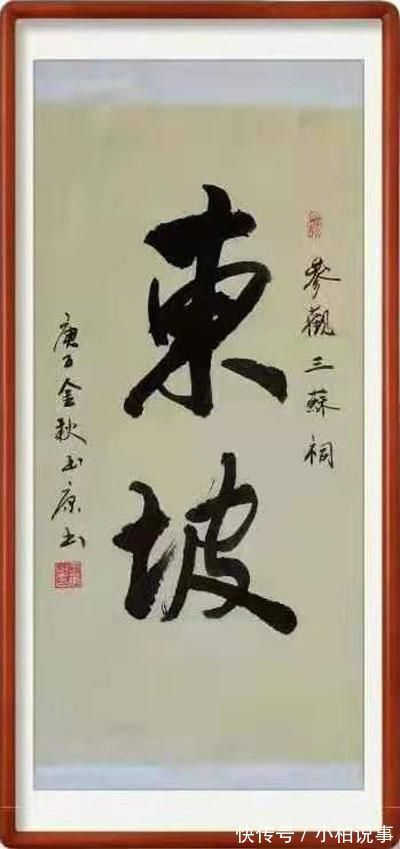 參觀三蘇祠
東坡
庚子金秋玉书
快传号/小柏说事